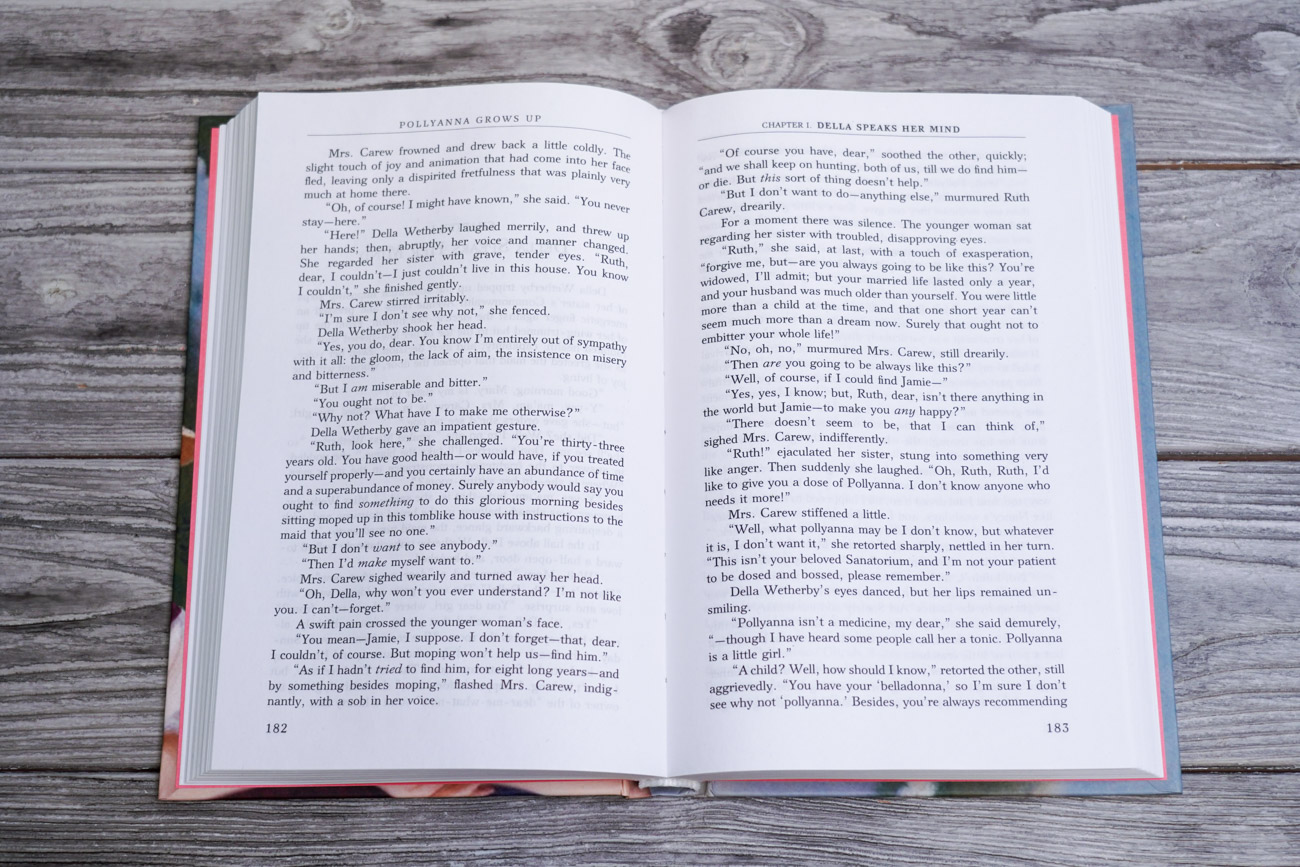 POLLYANNA GROWS UP
Mrs. Carew frowned and drew back a little coldly. The
slight touch of joy and animation that had come into her face
fled, leaving only a dispirited fretfulness that was plainly very
much at home there.
“Oh, of course! I might have known,” she said. “You never
stay—here.”
“Here!” Della Wetherby laughed merrily, and threw up
her hands; then, abruptly, her voice and manner changed.
She regarded her sister with grave, tender eyes. “Ruth,
dear, I couldn’t—I just couldn’t live in this house. You know
I couldn’t,” she finished gently.
Mrs. Carew stirred irritably.
“I’m sure I don’t see why not,” she fenced.
Della Wetherby shook her head.
“Yes, you do, dear. You know I’m entirely out of sympathy
with it all: the gloom, the lack of aim, the insistence on misery
and bitterness.”
“But I am miserable and bitter.”
“You ought not to be.”
“Why not? What have I to make me otherwise?”
Della Wetherby gave an impatient gesture.
“Ruth, look here,” she challenged. “You’re thirty-three
years old. You have good health—or would have, if you treated
yourself properly—and you certainly have an abundance of time
and a superabundance of money. Surely anybody would say you
ought to find something to do this glorious morning besides
sitting moped up in this tomblike house with instructions to the
maid that you’ll see no one.”
“But I don’t want to see anybody.”
“Then I’d make myself want to.”
Mrs. Carew sighed wearily and turned away her head.
“Oh, Della, why won’t you ever understand? I’m not like
you. I can’t—forget.”
A swift pain crossed the younger woman’s face.
“You mean—Jamie, I suppose. I don’t forget—that, dear.
I couldn’t, of course. But moping won’t help us—find him.”
“As if I hadn’t tried to find him, for eight long years—and
by something besides moping,” flashed Mrs. Carew, indig-
nantly, with a sob in her voice.
182
CHAPTER I. DELLA SPEAKS HER MIND
“Of course you have, dear,” soothed the other, quickly;
“and we shall keep on hunting, both of us, till we do find him—
or die. But this sort of thing doesn’t help.”
“But I don’t want to do—anything else,” murmured Ruth
Carew, drearily.
For a moment there was silence. The younger woman sat
regarding her sister with troubled, disapproving eyes.
“Ruth,” she said, at last, with a touch of exasperation,
“forgive me, but—are you always going to be like this? You’re
widowed, I’ll admit; but your married life lasted only a year,
and your husband was much older than yourself. You were little
more than a child at the time, and that one short year can’t
seem much more than a dream now. Surely that ought not to
embitter your whole life!”
“No, oh, no,” murmured Mrs. Carew, still drearily.
“Then are you going to be always like this?”
“Well, of course, if I could find Jamie—”
“Yes, yes, I know; but, Ruth, dear, isn’t there anything in
the world but Jamie—to make you any happy?”
“There doesn’t seem to be, that I can think of,”
sighed Mrs. Carew, indifferently.
“Ruth!” ejaculated her sister, stung into something very
like anger. Then suddenly she laughed. “Oh, Ruth, Ruth, I’d
like to give you a dose of Pollyanna. I don’t know anyone who
needs it more!”
Mrs. Carew stiffened a little.
“Well, what pollyanna may be I don’t know, but whatever
it is, I don’t want it,” she retorted sharply, nettled in her turn.
“This isn’t your beloved Sanatorium, and I’m not your patient
to be dosed and bossed, please remember.”
Della Wetherby’s eyes danced, but her lips remained un-
smiling.
“Pollyanna isn’t a medicine, my dear,” she said demurely,
“—though I have heard some people call her a tonic. Pollyanna
is a little girl.”
“A child? Well, how should I know,” retorted the other, still
aggrievedly. “You have your ‘belladonna,’ so I’m sure I don’t
see why not ‘pollyanna.’ Besides, you’re always recommending
183